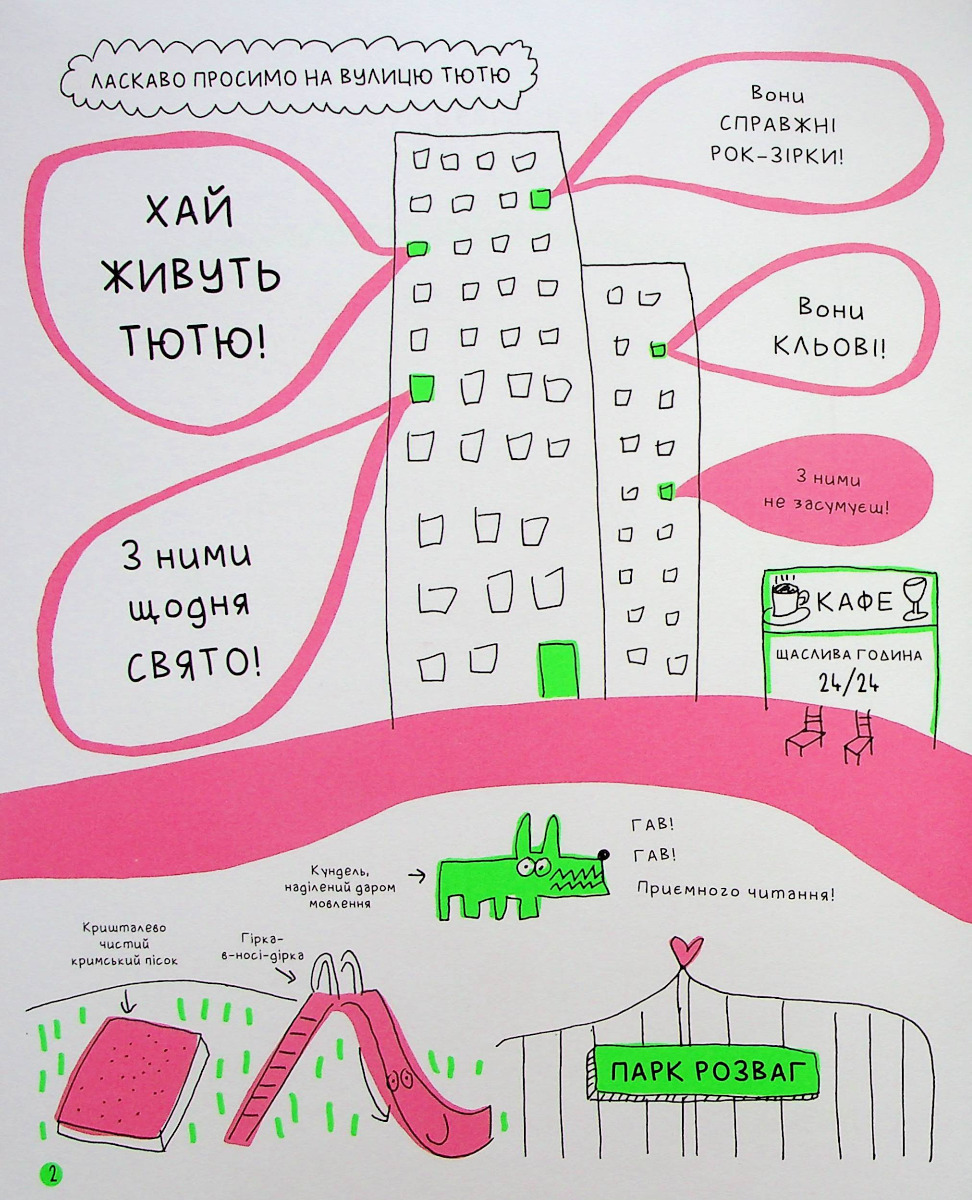 ЛАСКАВО ПРОСИМО НА ВУЛИЦЮ ТЮТЮ
Вони
СПРАВЖНІ
РОК-ЗІРКИ!
ХАЙ
ЖИВУТЬ
ТЮТЮ!
Вони
КЛЬОВІ!
З ними
не засумуєш!
З ними
щодня
СВЯТО!
КАФЕ
ЩАСЛИВА ГОДИНА
24/24
ГАВ!
ГАВ!
Приємного читання!
Кундель,
наділений даром
мовлення
Кришталево
чистий
кримський пісок
Гірка-
в-носі-дірка
ПАРК РОЗВАГ
2